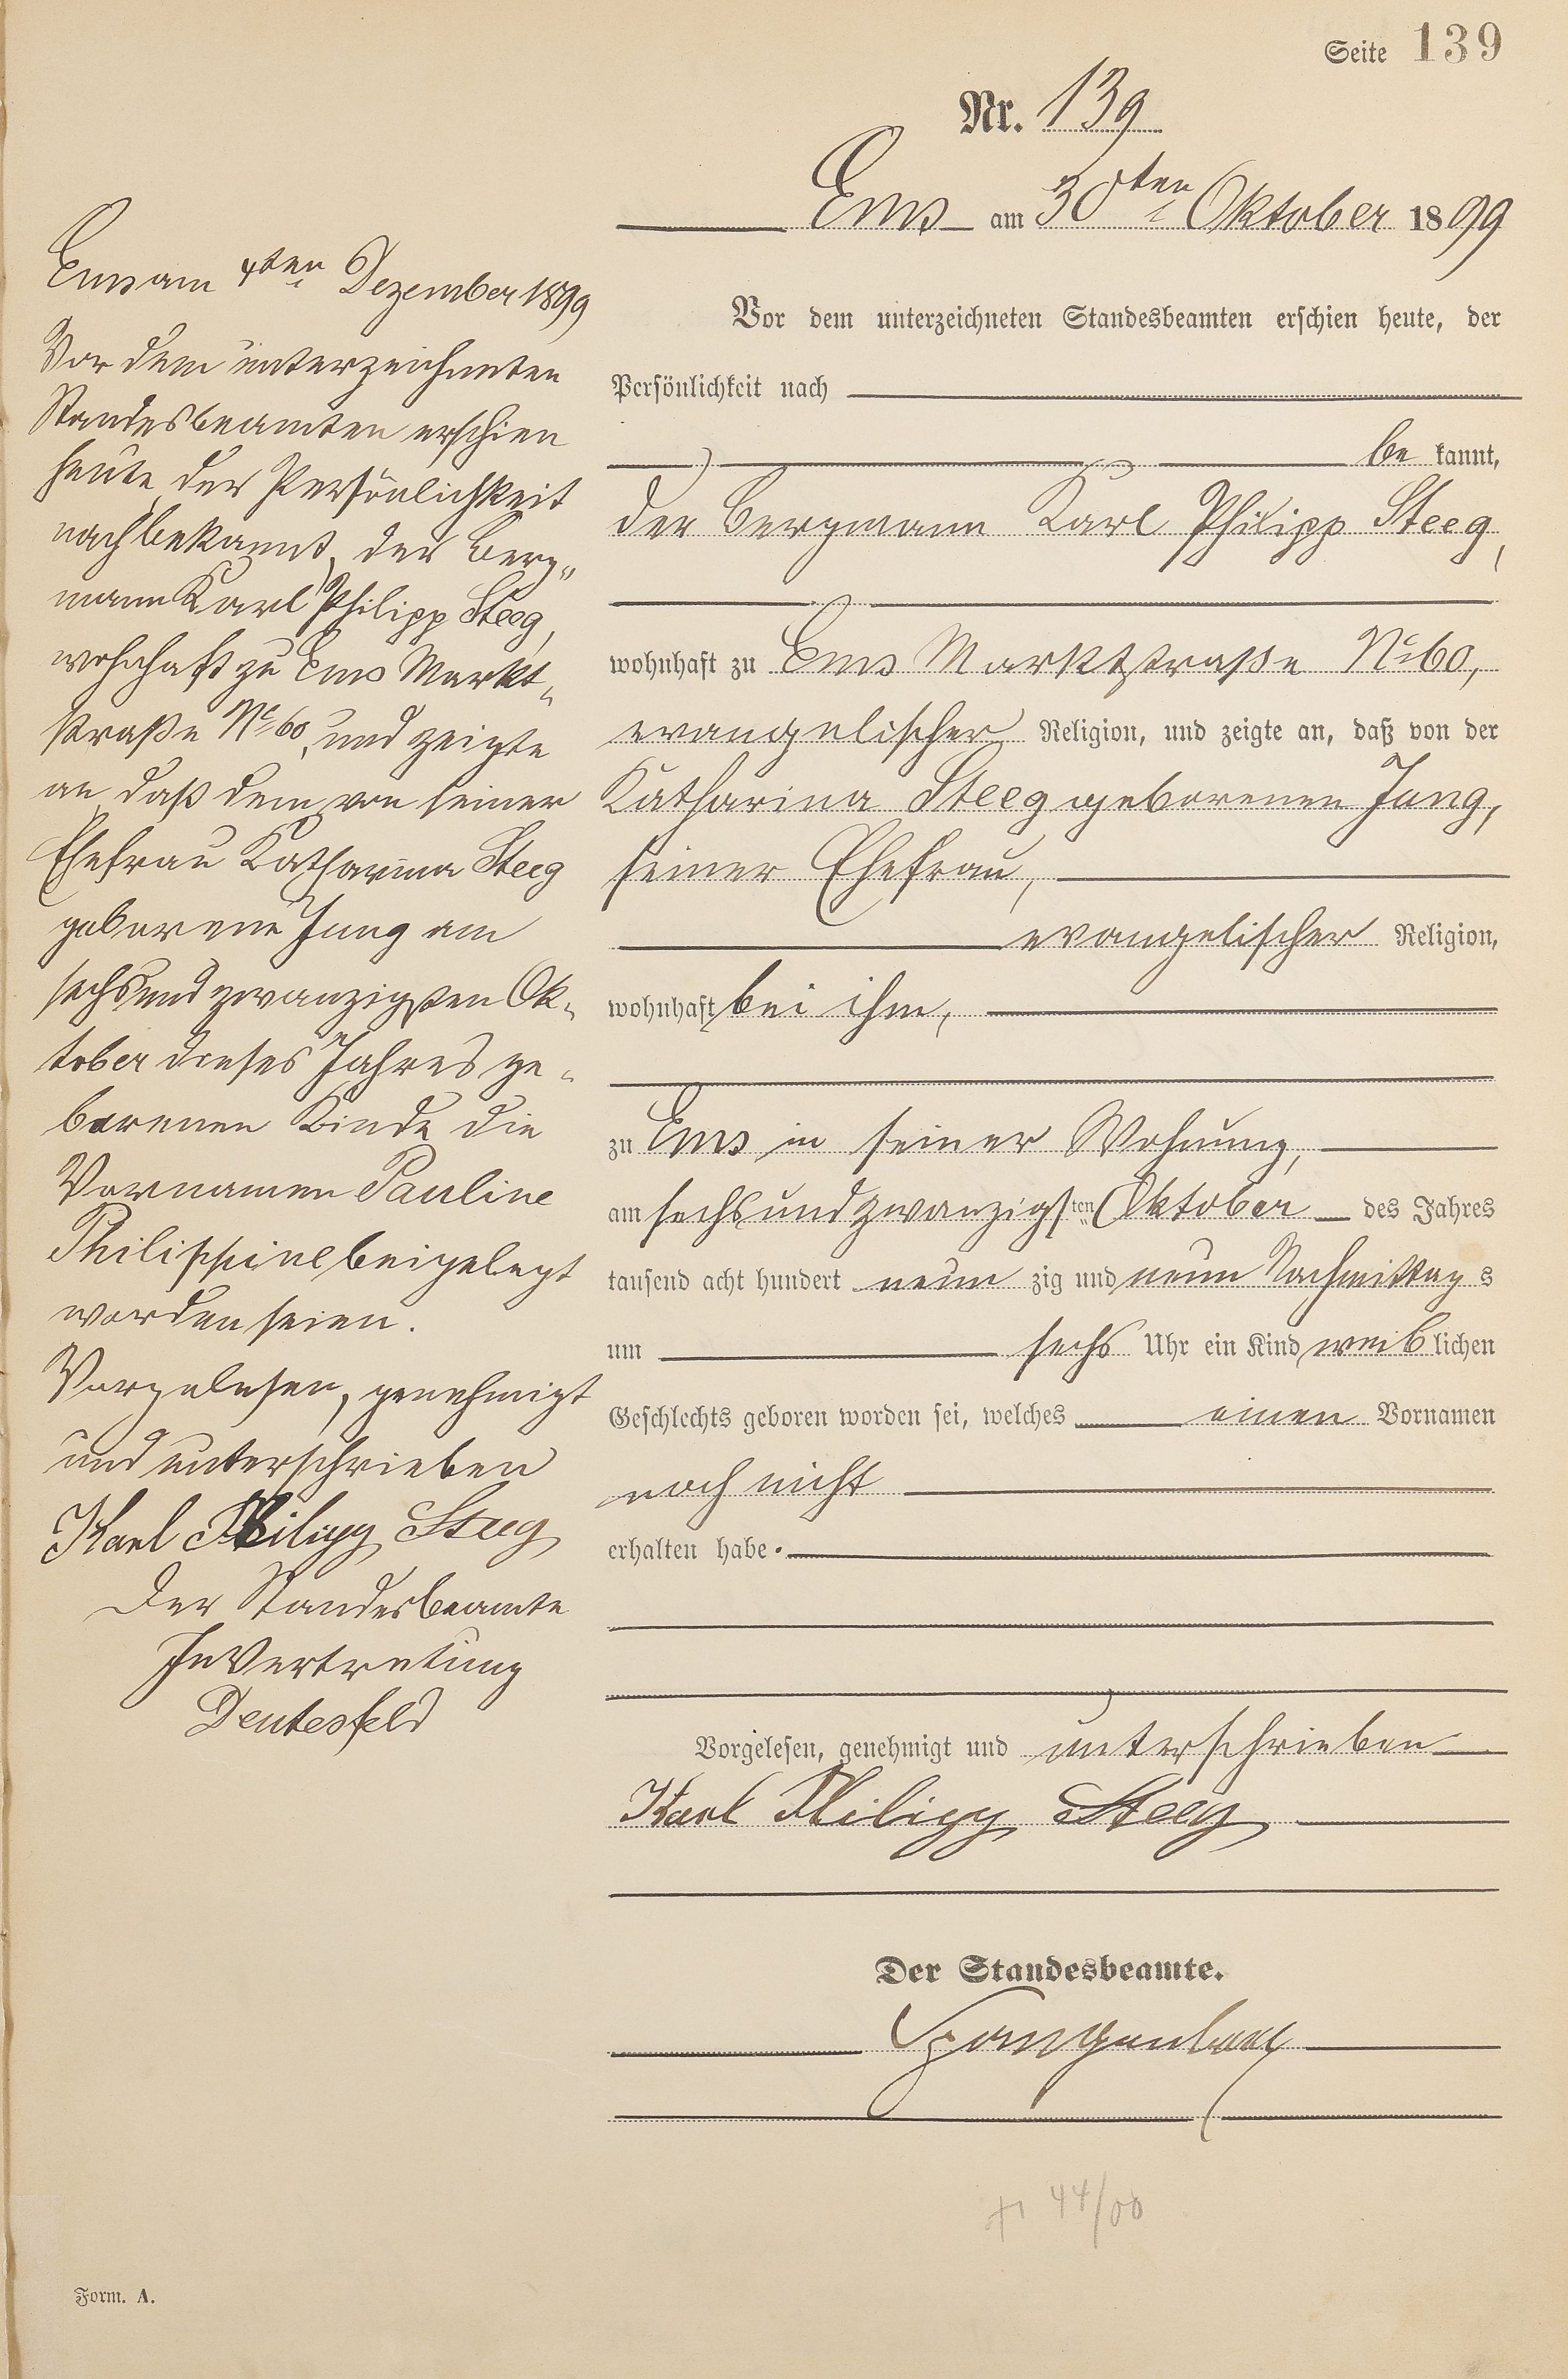 Seite 139
Nr. 139
Ems am 30ten Oktober 1899
Vor dem unterzeichneten Standesbeamten erschien heute, der
Persönlichkeit nach
be kannt,
der Bergmann Karl Philipp Steeg,
wohnhaft zu Ems Marktstraße No 60,
evangelischer Religion, und zeigte an, daß von der
Katharina Steeg geborenen Jung,
seiner Ehefrau,
evangelischer Religion,
wohnhaft bei ihm,
zu Ems in seiner Wohnung,
am sechsundzwanzigsten Oktober des Jahres
tausend acht hundert neun zig und neun Nachmittag s
um sechs Uhr ein Kind weib lichen
Geschlechts geboren worden sei, welches einen Vornamen
noch nicht
erhalten habe.
Vorgelesen, genehmigt und unterschrieben
Karl Philipp Steeg
Der Standesbeamte.
Ems am 4ten Dezember 1899
Vor dem unterzeichneten
Standesbeamten erschien
heute der Persönlichkeit
nach bekannt, der Berg„
mann Karl Philipp Steeg,
wohnhaft zu Ems Markt„
straße No 60, und zeigte
an daß dem von seiner
Ehefrau Katharina Steeg
geborene Jung am
sechsundzwanzigsten Ok„
tober dieses Jahres ge„
borenen Kinde die
Vornamen Pauline
Philippine beigelegt
worden seien.
Vorgelesen, genehmigt
und unterschrieben
Karl Philipp Steeg
Der Standesbeamte
In Vertretung
Deutesfeld
44/00
Form. A.